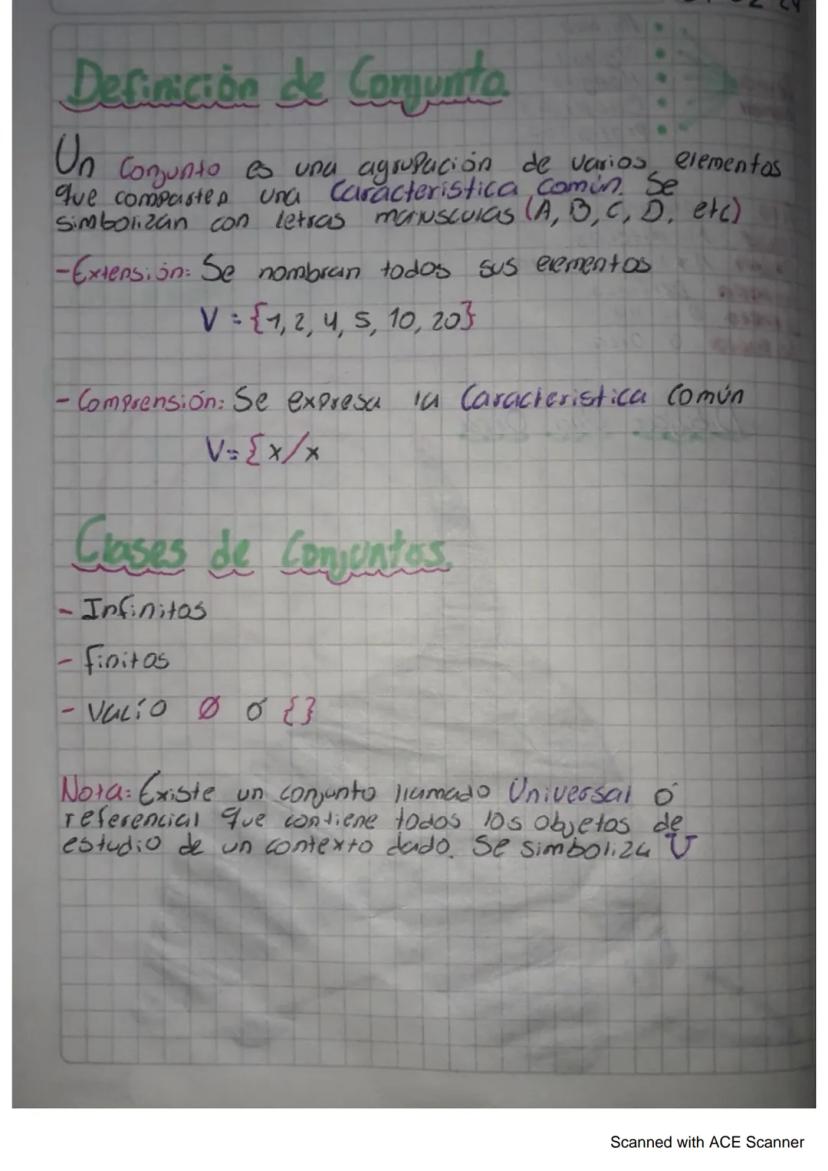 Definición de Conjunto
Un Conjunto es una agrupación de varios elementos
que comparten una Caracteristica común. Se
simbolizan con letras mayusculas (A, B, C, D, etc)
- Extensión: Se nombran todos sus elementos
V = {1, 2, 4, 5, 10, 20}
- Comprensión: Se expresa la Caracteristica Común
V = {x/x
Clases de Conjuntos
- Infinitos
- finitos
- Vacío Ø ó {}
Nota: Existe un conjunto llamado Universal ó
referencial que contiene todos los objetos de
estudio de un contexto dado. Se simboliza U
Scanned with ACE Scanner